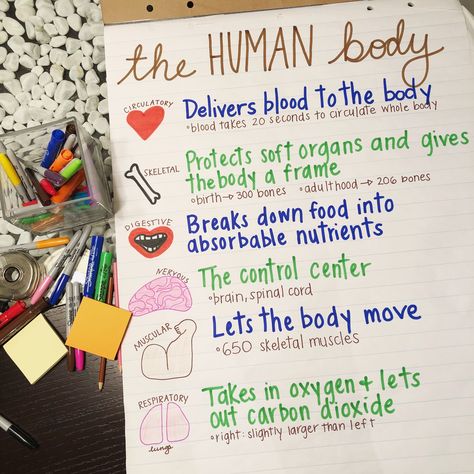 the HUMAN body
CIRCULATORY
Delivers blood to the body
• blood takes 20 seconds to circulate whole body
SKELETAL
Protects soft organs and gives
the body a frame
• birth → 300 bones • adulthood → 206 bones
DIGESTIVE
Breaks down food into
absorbable nutrients
NERVOUS
The control center
• brain, spinal cord
MUSCULAR
Lets the body move
• 650 skeletal muscles
RESPIRATORY
Takes in oxygen + lets
out carbon dioxide
• right: slightly larger than left
lungs